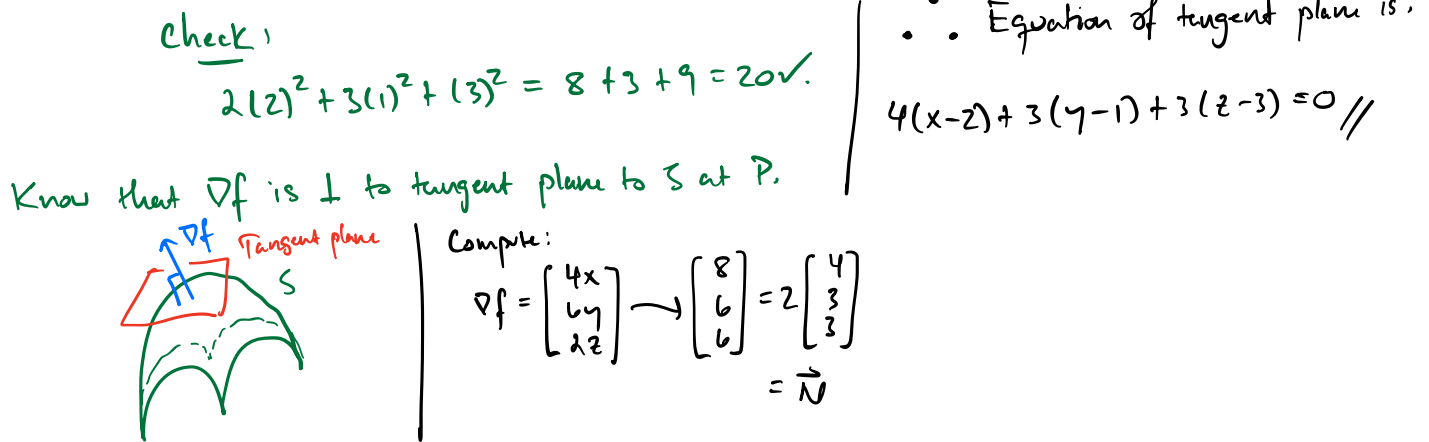 Check:
2(2)² + 3(1)² + (3)² = 8 + 3 + 9 = 20 ✓.
Know that ∇f is ⊥ to tangent plane to S at P.
∇f
Tangent plane
S
Compute:
∇f = [4x 6y 2z] → [8 6 6] = 2 [4 3 3]
= N⃗
∴ Equation of tangent plane is:
4(x-2) + 3(y-1) + 3(z-3) = 0 //